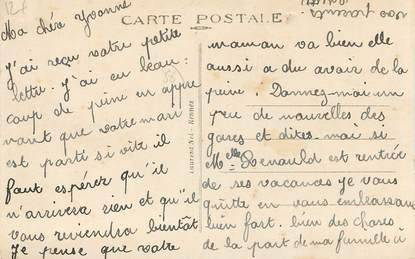 CARTE POSTALE
Ma chère Yvonne
J'ai reçu votre petite
lettre. j'ai eu beau=
coup de peine en appre
nant que votre mari
est parti si vite il
faut espérer qu'il
n'arrivera rien et qu'il
vous reviendra bientôt
Je pense que votre
Laurent Nel. Rennes
maman va bien elle
aussi a du avoir de la
peine. Donnez-moi un
peu de nouvelles des
gares et dites-moi si
Melle Renauld est rentrée
de ses vacances je vous
quitte en vous embrassant
bien fort. bien des choses
de la part de ma famille à
vos parents